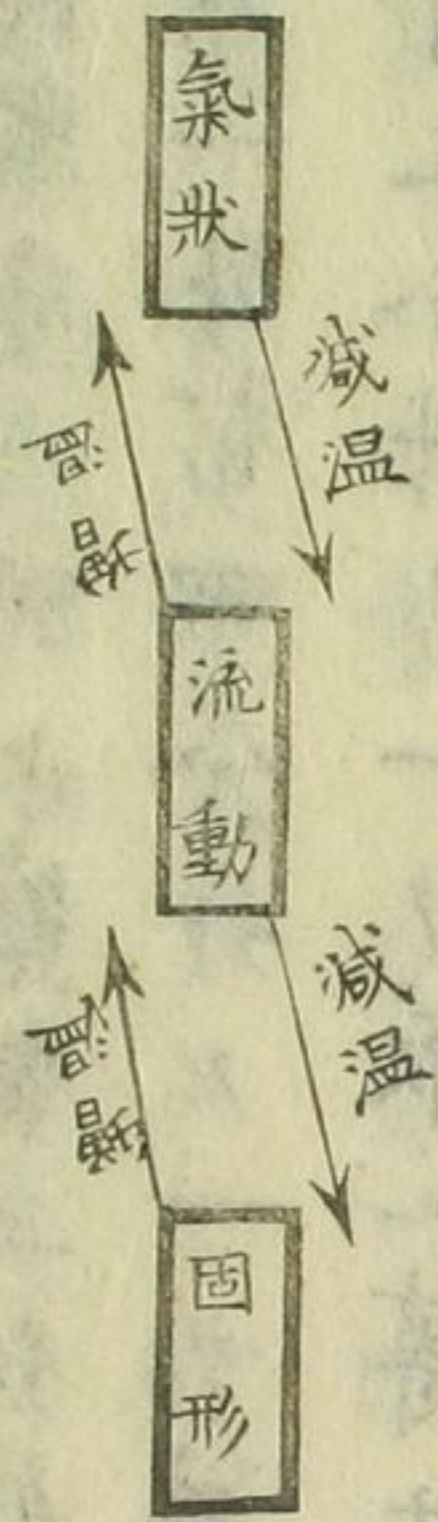 氣狀
減温
増温
流動
減温
増温
固形